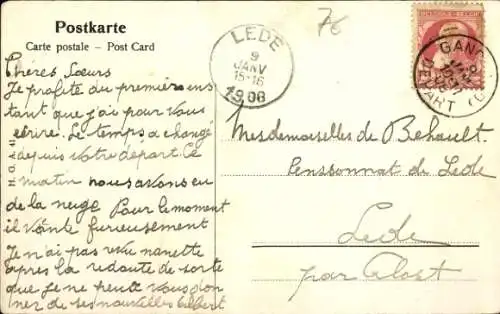 Postkarte
Carte postale – Post Card
76
LEDE
9
JANV
15-16
1908
BELGIQUE-BELGIË
GAND
DEPART
Chères Sœurs
Je profite du premier ins
tant que j'ai pour vous
écrire. Le temps a changé
depuis votre départ. Ce
matin nous avons eu
de la neige Pour le moment
il vente furieusement
Je n'ai pas revu nanette
après la redoute de sorte
que je ne peux vous don
ner de ses nouvelles Albert
Mesdemoiselles de Behault
Penssonnat de Lede
Lede
par Alost